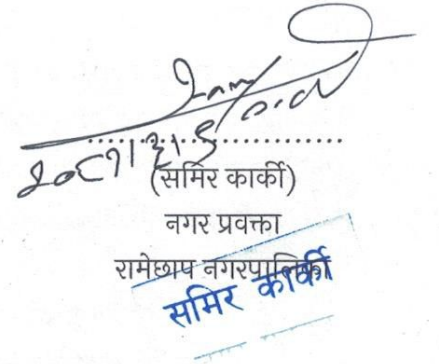 (समिर कार्की)
नगर प्रवक्ता
रामेछाप नगरपालिका
समिर कार्की